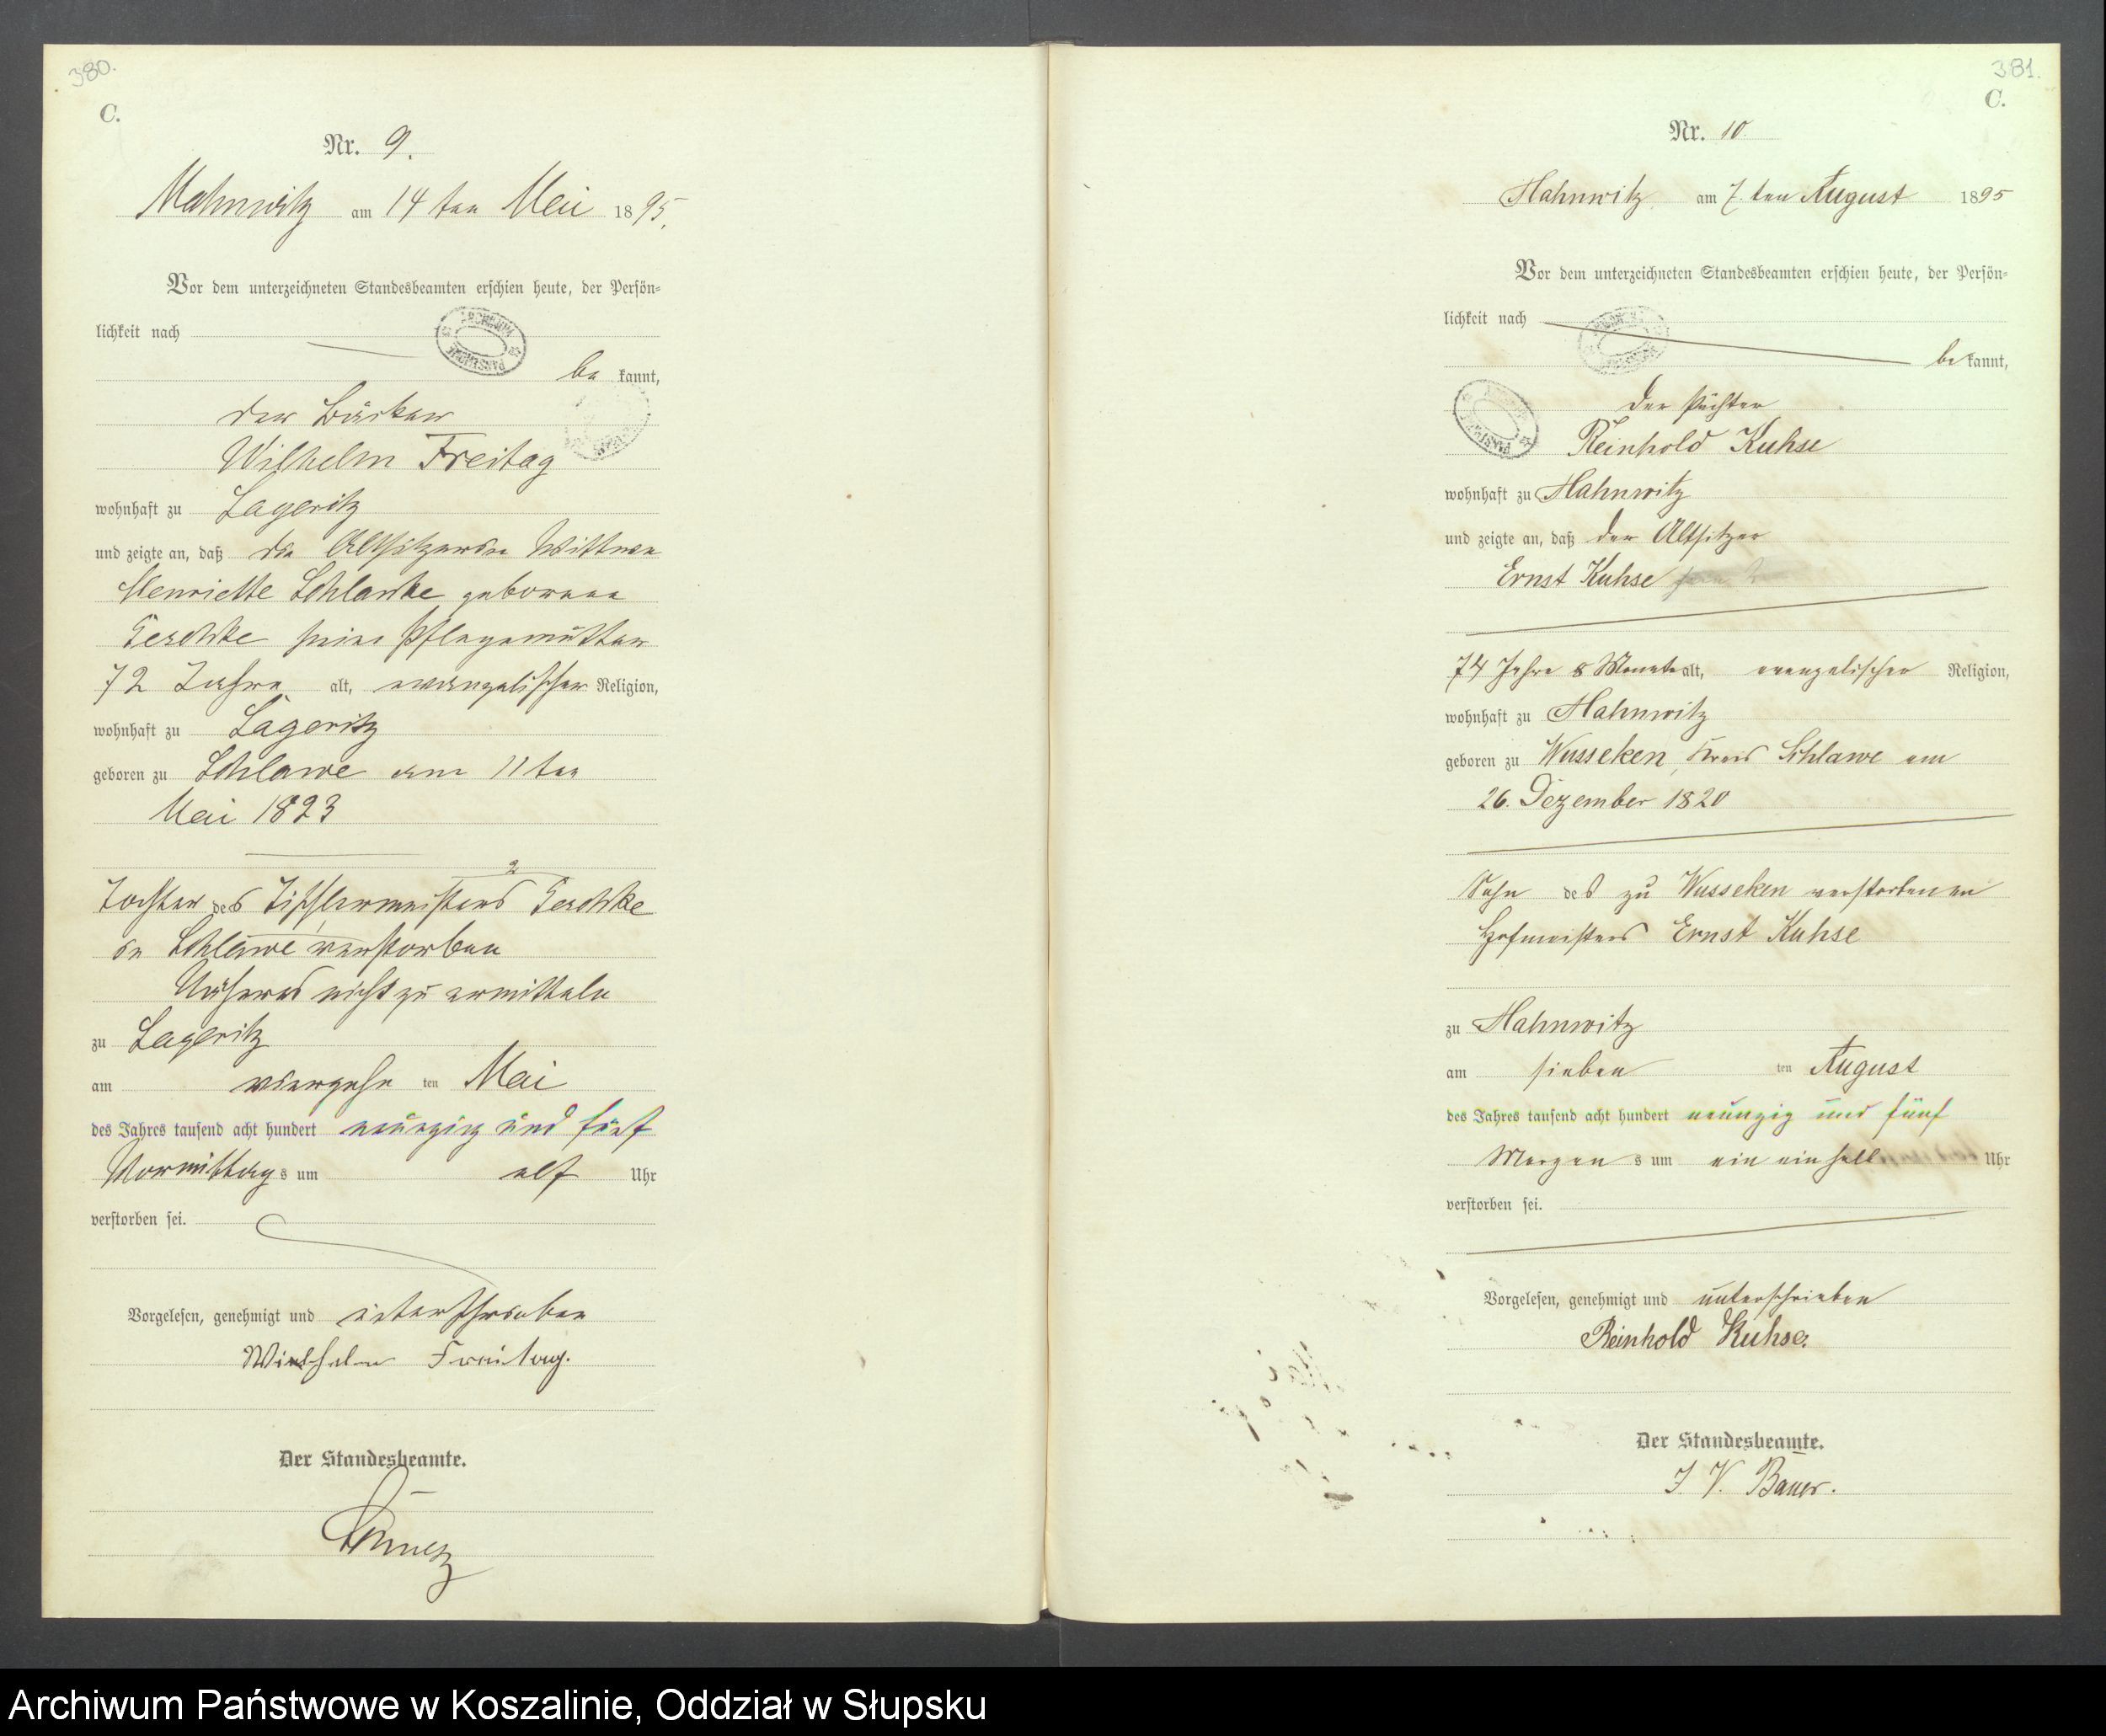 380.
C.
Nr. 9.
Mahnwitz am 14ten Mai 1895.
Vor dem unterzeichneten Standesbeamten erschien heute, der Persön-
lichkeit nach
be kannt,
der
Wilhelm Freitag
wohnhaft zu Lageritz
und zeigte an, daß die Altsitzerin Wittwe
Henriette Schlanke geborene
Geschke seine Pflegemutter
72 Jahre alt, evangelischer Religion,
wohnhaft zu Lageritz
geboren zu Schlawe am 11ten
Mai 1823
Tochter des Tischlermeisters Geschke
in Schlawe verstorben
Näheres nicht zu ermitteln
zu Lageritz
am vierzehn ten Mai
des Jahres tausend acht hundert neunzig und fünf
Vormittag s um elf Uhr
verstorben sei.
Vorgelesen, genehmigt und unterschrieben
Wilhelm Freitag.
Der Standesbeamte.
381.
C.
Nr. 10
Hahnwitz am 7. ten August 1895
Vor dem unterzeichneten Standesbeamten erschien heute, der Persön-
lichkeit nach
be kannt,
der Pächter
Reinhold Kuhse
wohnhaft zu Hahnwitz
und zeigte an, daß der Altsitzer
Ernst Kuhse
74 Jahre 8 Monate alt, evangelischer Religion,
wohnhaft zu Hahnwitz
geboren zu Wusseken, Kreis Schlawe am
26. Dezember 1820
Sohn des zu Wusseken verstorbenen
Hofmeisters Ernst Kuhse
zu Hahnwitz
am sieben ten August
des Jahres tausend acht hundert neunzig und fünf
Morgen s um ein ein halb Uhr
verstorben sei.
Vorgelesen, genehmigt und unterschrieben
Reinhold Kuhse.
Der Standesbeamte.
J. V. Bauer.
Archiwum Państwowe w Koszalinie, Oddział w Słupsku